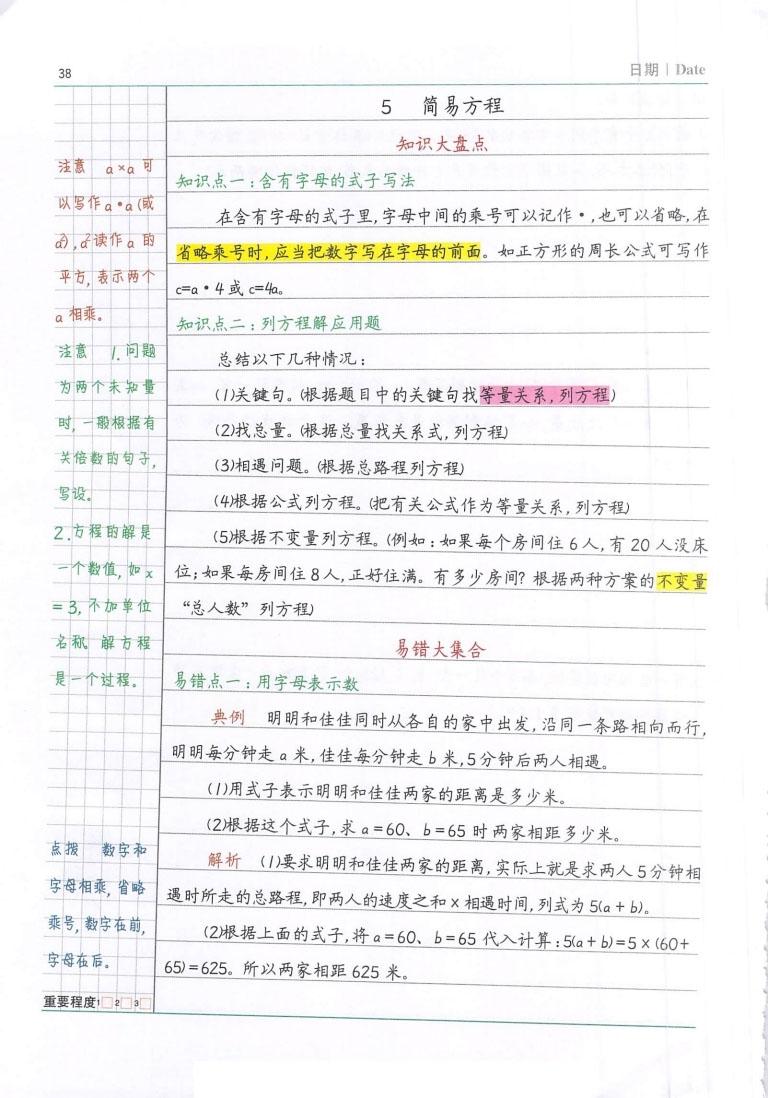 38
日期 | Date
5 简易方程
知识大盘点
知识点一:含有字母的式子写法
在含有字母的式子里,字母中间的乘号可以记作·,也可以省略,在
省略乘号时,应当把数字写在字母的前面。如正方形的周长公式可写作
c=a·4或c=4a。
知识点二:列方程解应用题
总结以下几种情况:
(1)关键句。(根据题目中的关键句找等量关系,列方程)
(2)找总量。(根据总量找关系式,列方程)
(3)相遇问题。(根据总路程列方程)
(4)根据公式列方程。(把有关公式作为等量关系,列方程)
(5)根据不变量列方程。(例如:如果每个房间住6人,有20人没床
位;如果每房间住8人,正好住满。有多少房间?根据两种方案的不变量
“总人数”列方程)
易错大集合
易错点一:用字母表示数
典例 明明和佳佳同时从各自的家中出发,沿同一条路相向而行,
明明每分钟走a米,佳佳每分钟走b米,5分钟后两人相遇。
(1)用式子表示明明和佳佳两家的距离是多少米。
(2)根据这个式子,求a=60、b=65时两家相距多少米。
解析 (1)要求明明和佳佳两家的距离,实际上就是求两人5分钟相
遇时所走的总路程,即两人的速度之和×相遇时间,列式为5(a+b)。
(2)根据上面的式子,将a=60、b=65代入计算:5(a+b)=5×(60+
65)=625。所以两家相距625米。
注意 a×a可
以写作a·a(或
a²),a²读作a的
平方,表示两个
a相乘。
注意 1.问题
为两个未知量
时,一般根据有
关倍数的句子,
写设。
2.方程的解是
一个数值,如x
=3,不加单位
名称。解方程
是一个过程。
点拨 数字和
字母相乘,省略
乘号,数字在前,
字母在后。
重要程度1□2□3□